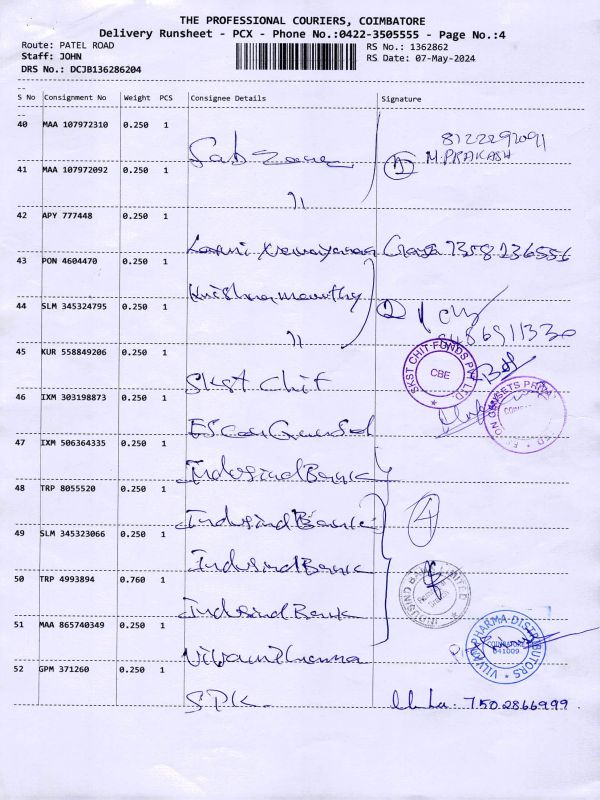 THE PROFESSIONAL COURIERS, COIMBATORE
Delivery Runsheet - PCX - Phone No.:0422-3505555 - Page No.:4
Route: PATEL ROAD
RS No.: 1362862
Staff: JOHN
RS Date: 07-May-2024
DRS No.: DCJB136286204
S No Consignment No Weight PCS Consignee Details Signature
40 MAA 107972310 0.250 1
8122292091
M.PRAKASH
Sab Zone
1
41 MAA 107972092 0.250 1
"
42 APY 777448 0.250 1
Laxmi 7358236556
43 PON 4604470 0.250 1
Krishnamoorthy
44 SLM 345324795 0.250 1
2
"
45 KUR 558849206 0.250 1
SKST CHIT FUNDS PVT LTD
CBE
SKST Chit
46 IXM 303198873 0.250 1
47 IXM 506364335 0.250 1
IndusindBank
48 TRP 8055520 0.250 1
IndusindBank
4
49 SLM 345323066 0.250 1
IndusindBank
50 TRP 4993894 0.760 1
IndusindBank
51 MAA 865740349 0.250 1
PHARMA DISTRIBUTORS
COIMBATORE
641009
52 GPM 371260 0.250 1
SPK. 7502866999